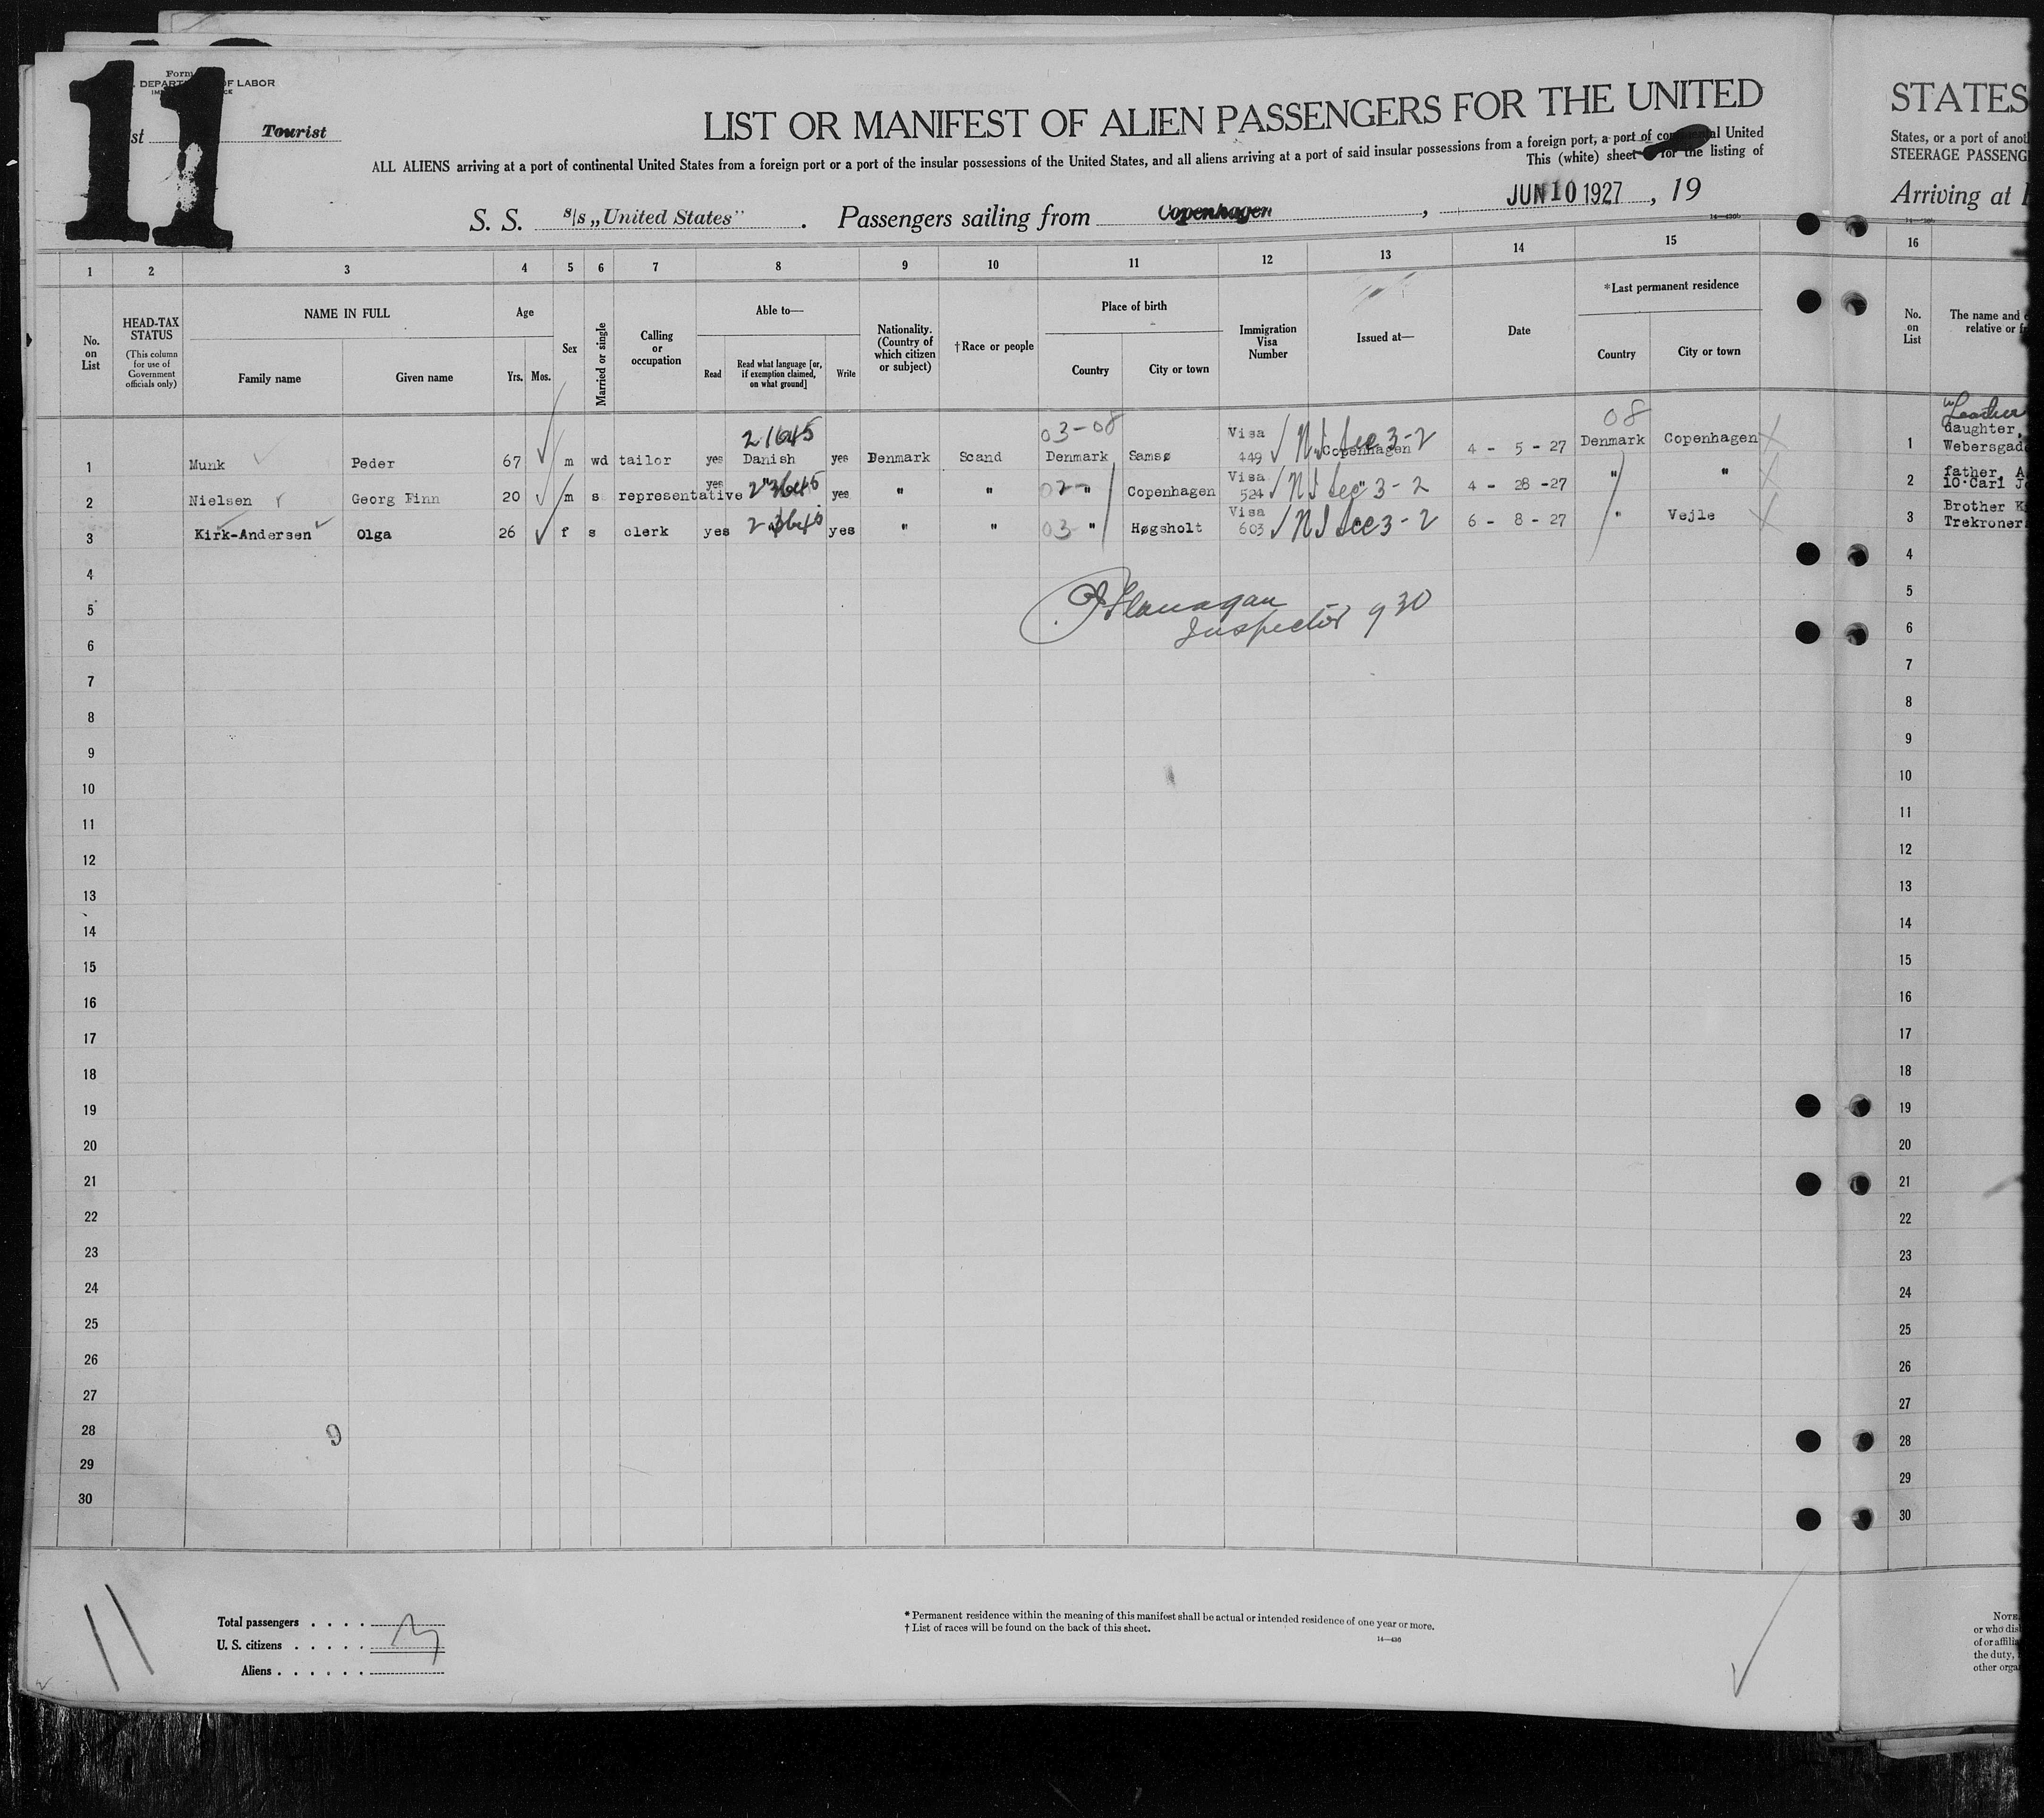 11
Form
DEPARTMENT OF LABOR
Tourist
LIST OR MANIFEST OF ALIEN PASSENGERS FOR THE UNITED
ALL ALIENS arriving at a port of continental United States from a foreign port or a port of the insular possessions of the United States, and all aliens arriving at a port of said insular possessions from a foreign port, a port of continental United
This (white) sheet is for the listing of
S. S. s/s „United States" . Passengers sailing from Copenhagen , JUN 10 1927 , 19
14—430b
1 2 3 4 5 6 7 8 9 10 11 12 13 14 15
No. on List
HEAD-TAX STATUS
(This column for use of Government officials only)
NAME IN FULL
Family name
Given name
Age
Yrs. Mos.
Sex
Married or single
Calling or occupation
Able to—
Read
Read what language [or, if exemption claimed, on what ground]
Write
Nationality. (Country of which citizen or subject)
†Race or people
Place of birth
Country
City or town
Immigration Visa Number
Issued at—
Date
*Last permanent residence
Country
City or town
21645 03-08 Visa NI Sec 3-2 08
1 Munk Peder 67 m wd tailor yes Danish yes Denmark Scand Denmark Samsø 449 Copenhagen 4 - 5 - 27 Denmark Copenhagen
2 Nielsen Georg Finn 20 m s representative yes " yes " " 02- " Copenhagen Visa 524 NI Sec 3-2 " 4 - 28 -27 " "
3 Kirk-Andersen Olga 26 f s clerk yes yes " " 03 " Høgsholt Visa 603 NI Sec 3-2 6 - 8 - 27 " Vejle
4
Flanagan
5
Inspector 930
6
7
8
9
10
11
12
13
14
15
16
17
18
19
20
21
22
23
24
25
26
27
28 9
29
30
11
Total passengers
U. S. citizens
Aliens
3
* Permanent residence within the meaning of this manifest shall be actual or intended residence of one year or more.
† List of races will be found on the back of this sheet.
14—430
STATES
States, or a port of
STEERAGE
Arriving at
16
No. on List
The name and
relative or
1 daughter,
2 father, 10 Carl
3 Brother
Trekroner
4
5
6
7
8
9
10
11
12
13
14
15
16
17
18
19
20
21
22
23
24
25
26
27
28
29
30
NOTE
or who
of or
the duty,
other